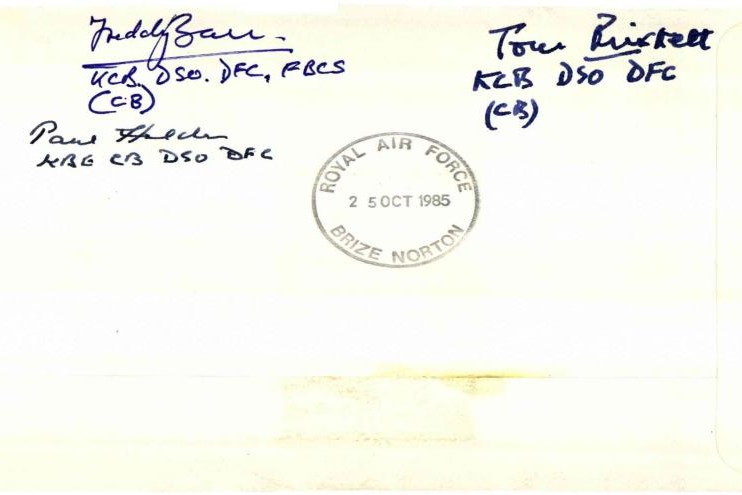 Freddy Ball
KCB, DSO. DFC, FBCS
(CB)
Paul Holder
KBE CB DSO DFC
Tom Prickett
KCB DSO DFC
(CB)
ROYAL AIR FORCE
2 5 OCT 1985
BRIZE NORTON